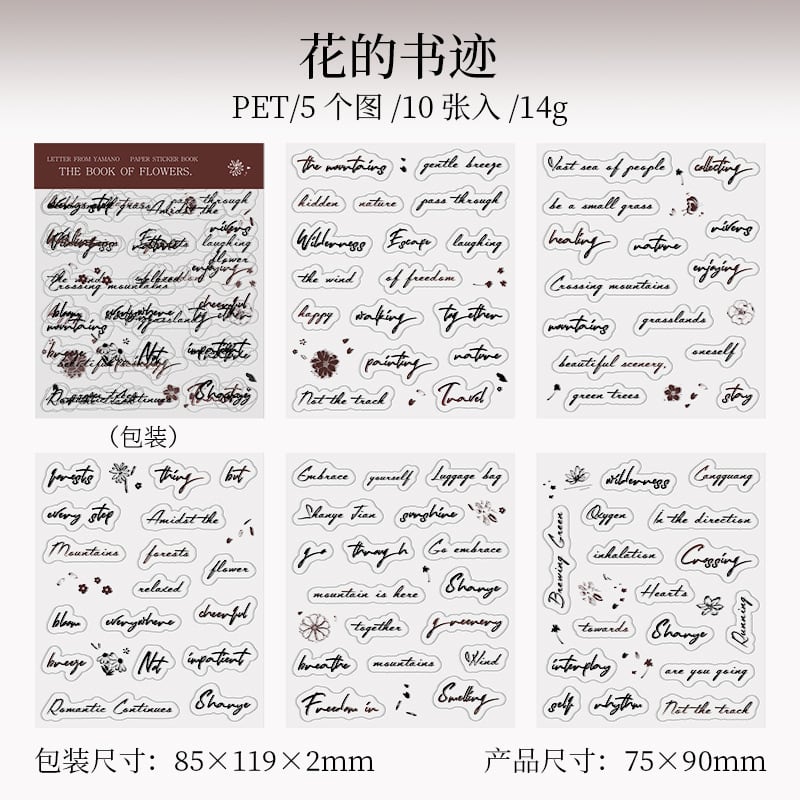 花的书迹
PET/5 个图 /10 张入 /14g
LETTER FROM YAMANO PAPER STICKER BOOK
THE BOOK OF FLOWERS.
（包装）
the mountains gentle breeze
hidden nature pass through
Wilderness Escape laughing
the wind of freedom
happy walking together
painting nature
Not the track Travel
Vast sea of people collecting
be a small grass
healing nature rivers
Crossing mountains enjoying
mountains grasslands
beautiful scenery. oneself
green trees stay
forests thing but
every step Amidst the
Mountains forests flower
relaxed
bloom everywhere cheerful
breeze Not impatient
Romantic Continues Shanye
Embrace yourself Luggage bag
Shanye Jian sunshine
go through Go embrace
mountain is here Shanye
together greenery
breathe mountains Wind
Freedom in Smelling
wilderness Cangguang
Brewing Green Oxygen In the direction
inhalation Crossing
Hearts
towards Shanye Running
interplay are you going
self rhythm Not the track
包装尺寸：85×119×2mm
产品尺寸：75×90mm